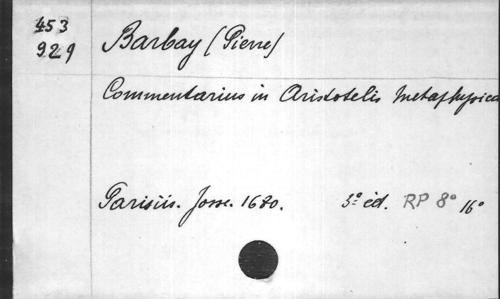 453
929
Barbay (Pierre)
Commentarius in Aristotelis Metaphysica
Parisiis. Josse. 1680. 3º éd. RP 8º 16º